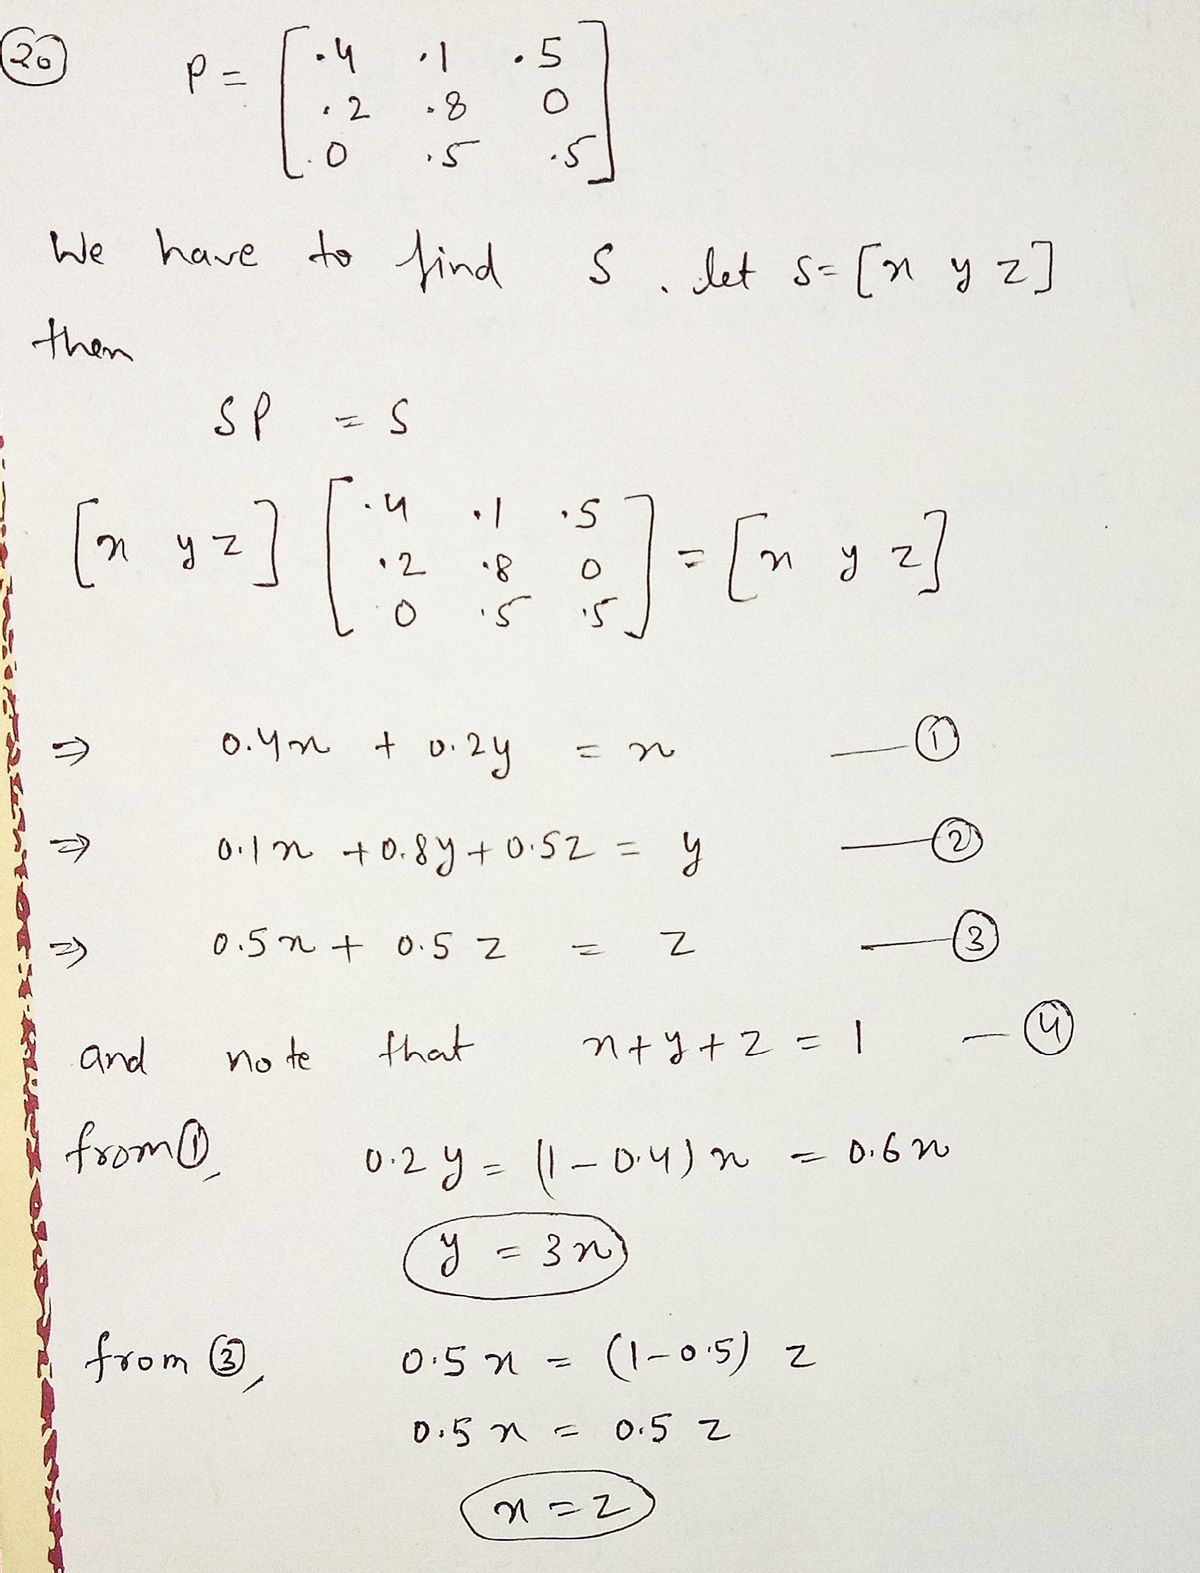 20
P = [ .4 .1 .5
.2 .8 0
.0 .5 .5 ]
We have to find S. let S = [x y z]
then
SP = S
[x y z] [ .4 .1 .5
.2 .8 0
0 .5 .5 ] = [x y z]
⇒ 0.4x + 0.2y = x — ①
⇒ 0.1x + 0.8y + 0.5z = y — ②
⇒ 0.5x + 0.5 z = z — ③
and note that x + y + z = 1 — ④
from ①, 0.2 y = (1 - 0.4) x = 0.6 x
y = 3x
from ③, 0.5 x = (1 - 0.5) z
0.5 x = 0.5 z
x = z